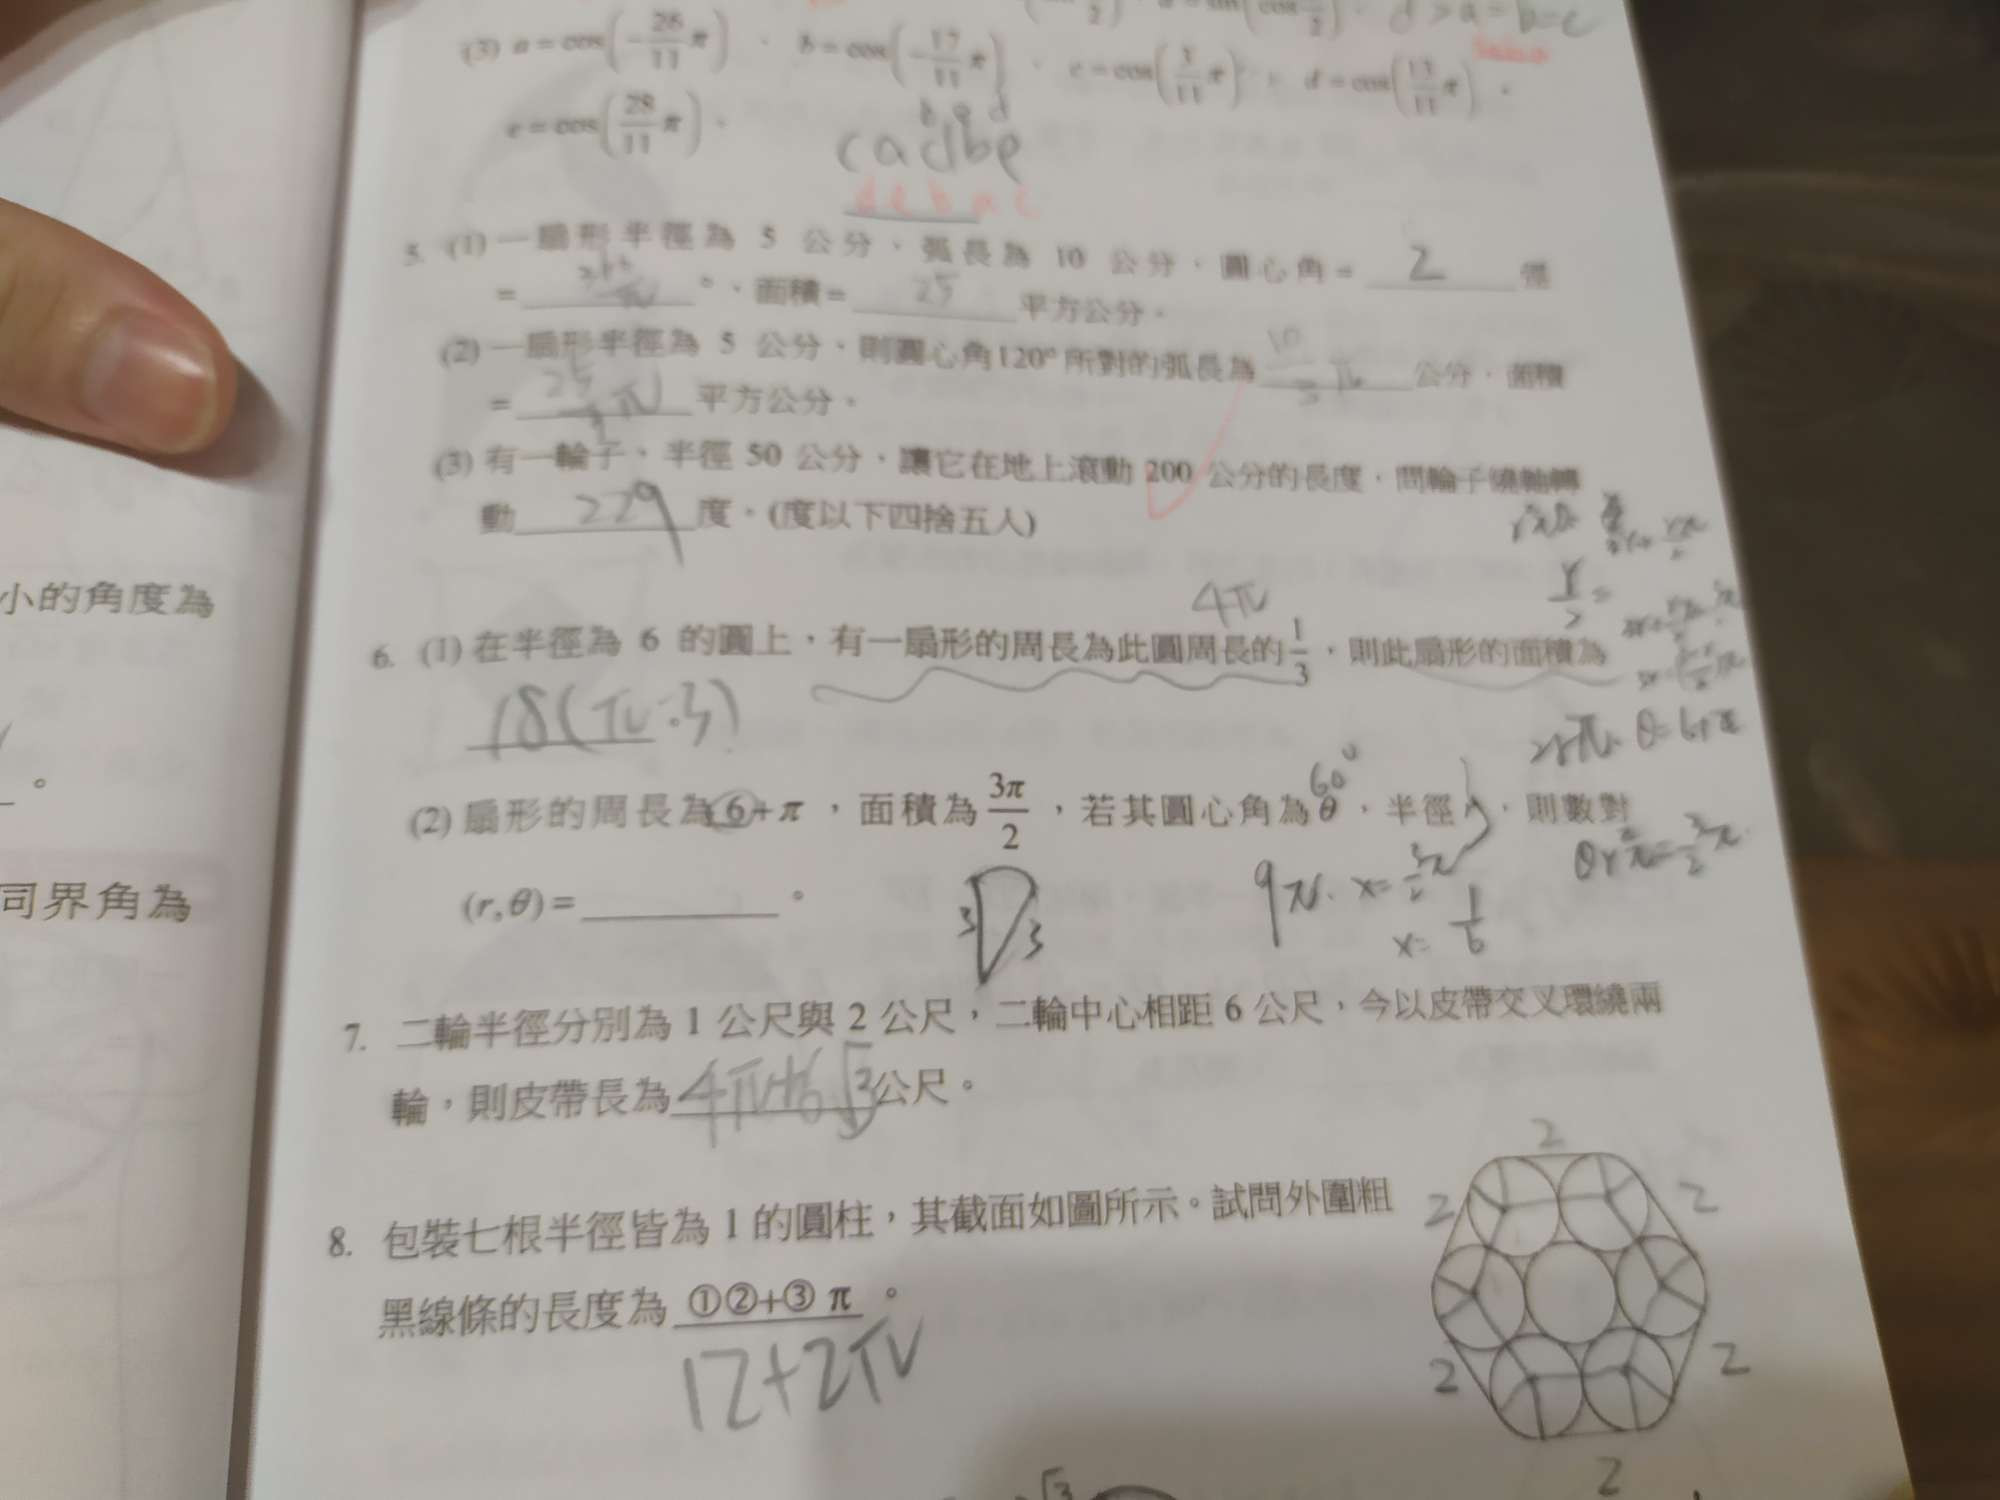 (3) a=cos(-26/11 π)、b=cos(-17/11 π)、c=cos(3/11 π)、d=cos(13/11 π)、
e=cos(28/11 π)。
b e d
cadbe
debac
5. (1) 一扇形半徑為 5 公分、弧長為 10 公分,圓心角= 2 徑
= π °、面積= 25 平方公分。
(2) 一扇形半徑為 5 公分,則圓心角120°所對的弧長為 10/3 π 公分,面積
= 25/3 π 平方公分。
(3) 有一輪子、半徑 50 公分,讓它在地上滾動 200 公分的長度,問輪子繞軸轉
動 229 度。(度以下四捨五入)
小的角度為
4π
6. (1) 在半徑為 6 的圓上,有一扇形的周長為此圓周長的1/3,則此扇形的面積為
18(π-3)
60°
(2) 扇形的周長為 6+π,面積為 3π/2,若其圓心角為θ,半徑r,則數對
(r,θ)= 。
3 3
9π·x=3/2π
x=1/6
同界角為
7. 二輪半徑分別為 1 公尺與 2 公尺,二輪中心相距 6 公尺,今以皮帶交叉環繞兩
輪,則皮帶長為 4π+6√3 公尺。
8. 包裝七根半徑皆為 1 的圓柱,其截面如圖所示。試問外圍粗
黑線條的長度為 ①②+③ π 。
12+2π
2
2 2
2 2
2
√3